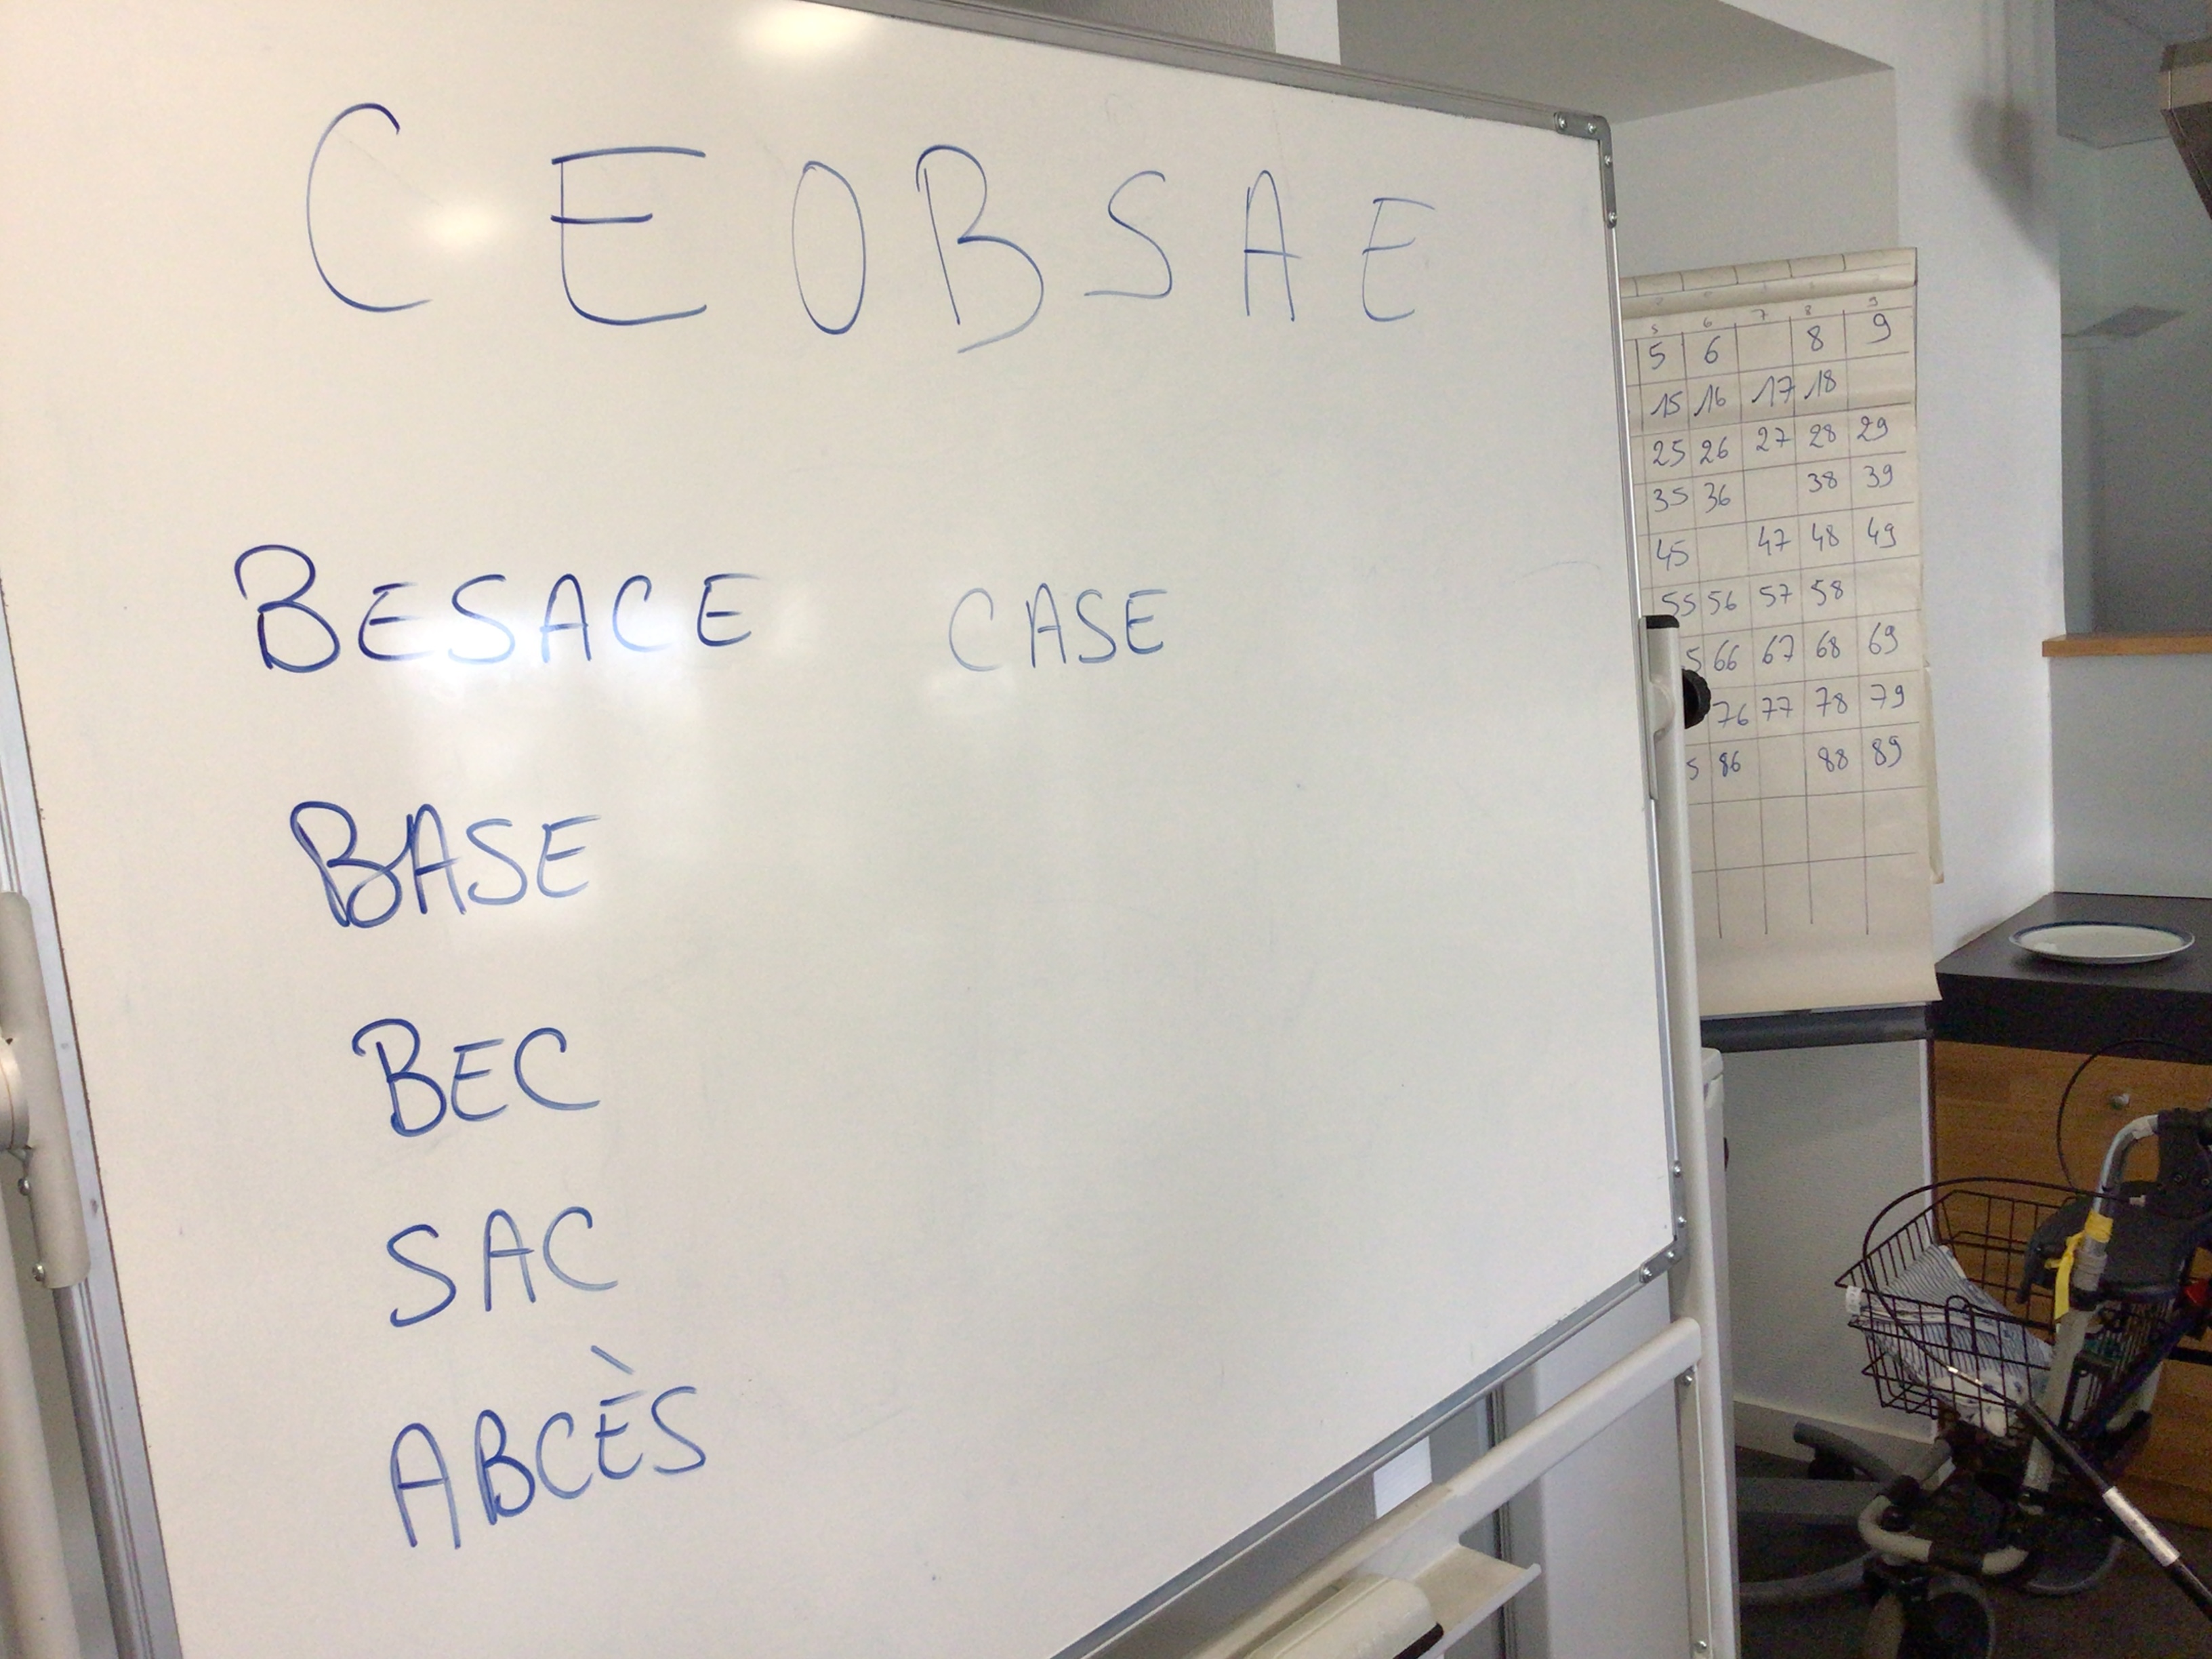 C E O B S A E
BESACE CASE
BASE
BEC
SAC
ABCÈS
5 6 7 8 9
5 6 8 9
15 16 17 18
25 26 27 28 29
35 36 38 39
45 47 48 49
55 56 57 58
5 66 67 68 69
76 77 78 79
5 86 88 89